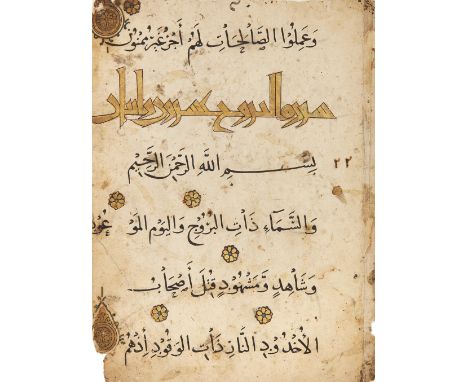 وَعَمِلُوا الصَّالِحَاتِ لَهُمْ أَجْرٌ غَيْرُ مَمْنُونٍ
سورة البروج عشرون
٢٢ بِسْمِ اللَّهِ الرَّحْمَنِ الرَّحِيمِ
وَالسَّمَاءِ ذَاتِ الْبُرُوجِ وَالْيَوْمِ الْمَوْعُودِ
وَشَاهِدٍ وَمَشْهُودٍ قُتِلَ أَصْحَابُ
الْأُخْدُودِ النَّارِ ذَاتِ الْوَقُودِ إِذْ هُمْ